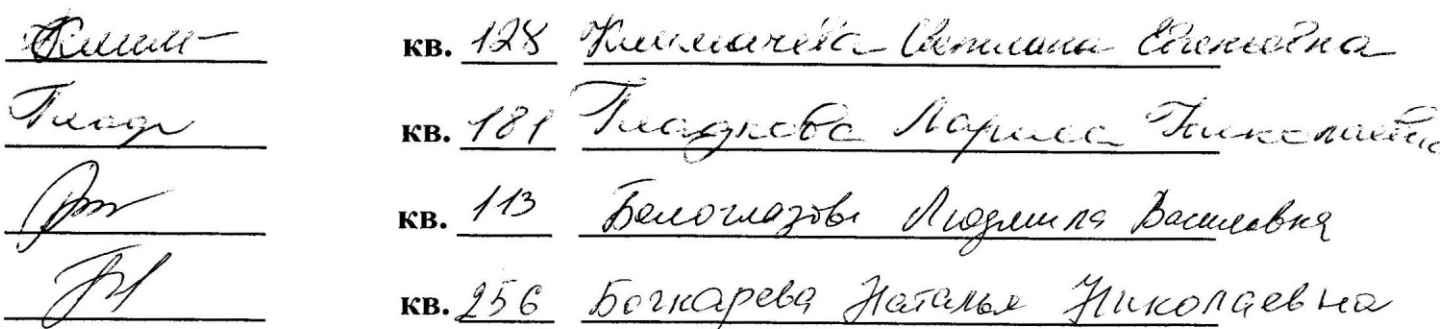 кв. 128 Климачёва Светлана Евгеньевна
Гладк кв. 181 Гладкова Лариса Николаевна
кв. 113 Белоглазова Людмила Васильевна
кв. 256 Бочкарева Наталья Николаевна